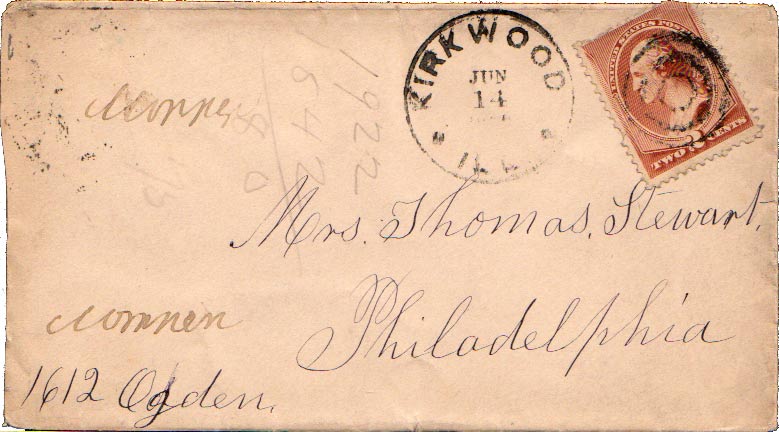 KIRKWOOD
JUN
14
ILL
UNITED STATES POSTAGE
2
TWO CENTS
1922
1542
Mrs. Thomas. Stewart.
Philadelphia
1612 Ogden.